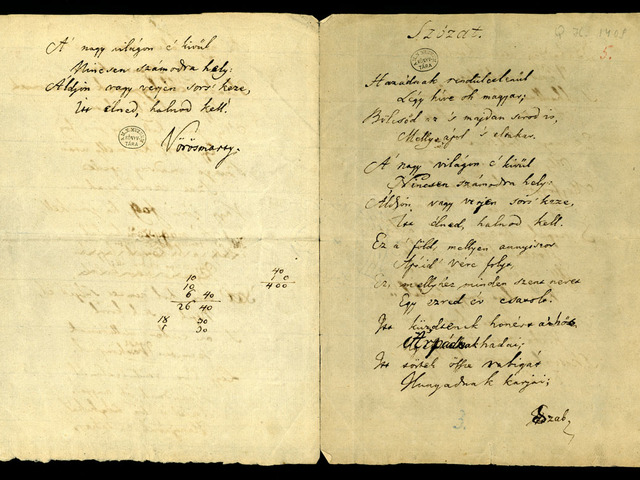 A' nagy világon é kivül
Nincsen számodra hely:
Áldjon vagy verjen sors' keze,
Itt élned, halnod kell.
Vörösmarty.
10
10
6 40
26 40
18 30
1 30
40
10
400
Szózat.
5.
Hazádnak rendületlenül
Légy híve oh magyar;
Bölcsőd az 's majdan sírod is,
Melly ápol 's eltakar.
A' nagy világon é kivül
Nincsen számodra hely:
Áldjon, vagy verjen sors' keze,
Itt élned, halnod kell.
Ez a' föld, mellyen annyiszor
Apáid' vére folyt,
Ez, mellyhez minden szent nevet
Egy ezred év csatolt.
Itt küzdtenek honért a' hős
Árpádnak hadai;
Itt törtek össze rabigát
Hunyadnak karjai;
Szab
3.